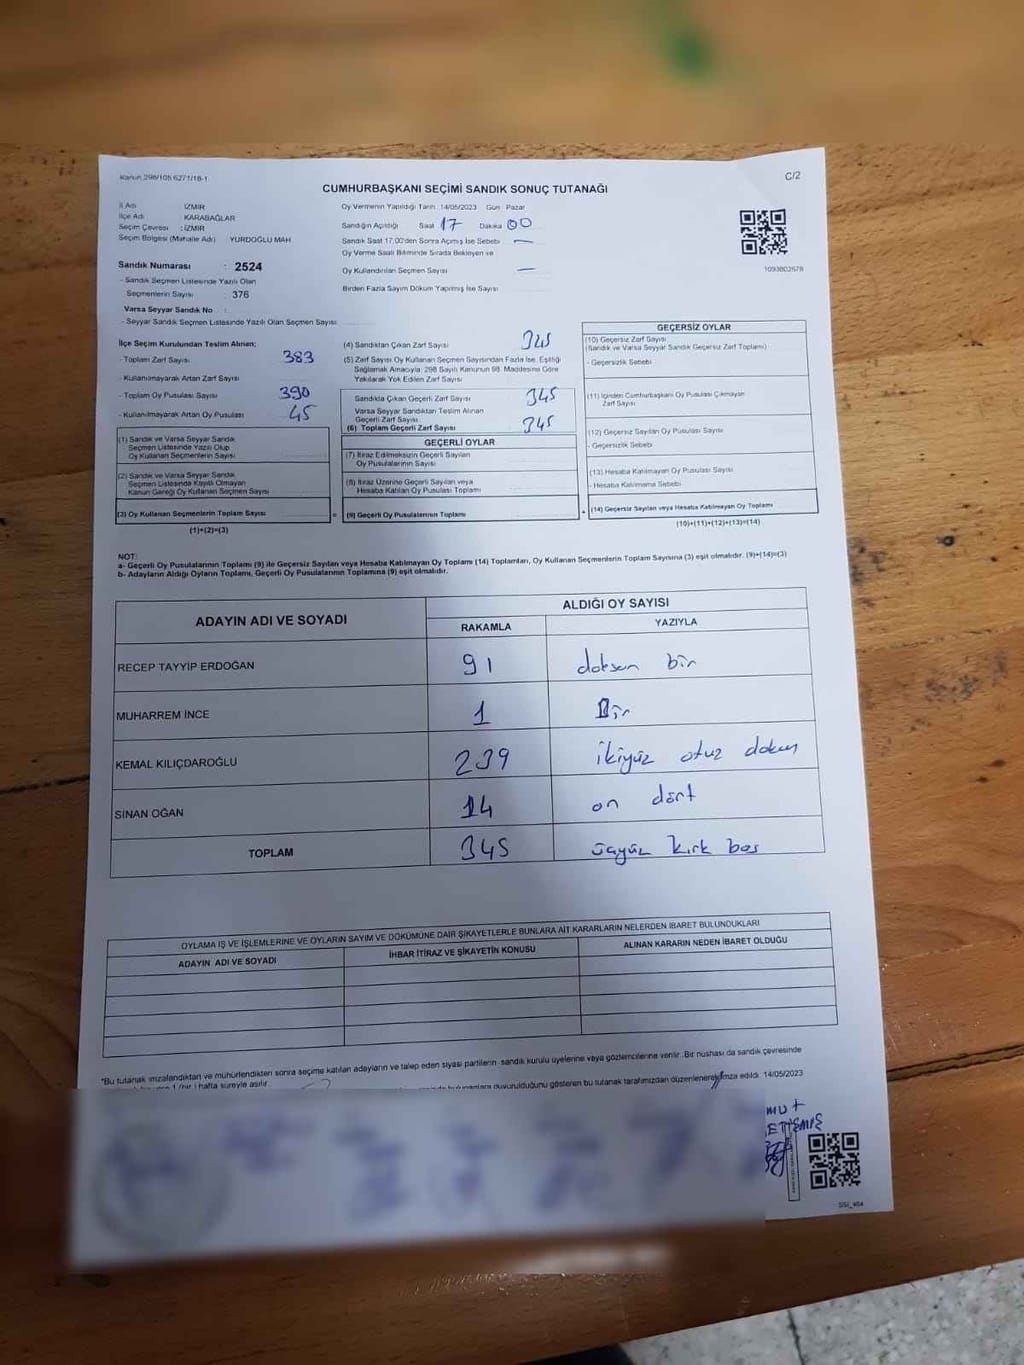 Kanun 298/105 6271/18-1
C/2
CUMHURBAŞKANI SEÇİMİ SANDIK SONUÇ TUTANAĞI
İl Adı : İZMİR
İlçe Adı : KARABAĞLAR
Seçim Çevresi : İZMİR
Seçim Bölgesi (Mahalle Adı) YURDOĞLU MAH
Sandık Numarası : 2524
- Sandık Seçmen Listesinde Yazılı Olan
Seçmenlerin Sayısı : 376
Varsa Seyyar Sandık No :
- Seyyar Sandık Seçmen Listesinde Yazılı Olan Seçmen Sayısı
Oy Vermenin Yapıldığı Tarih :14/05/2023 Gün : Pazar
Sandığın Açıldığı Saat 17 Dakika 00
Sandık Saat 17:00'den Sonra Açmış İse Sebebi —
Oy Verme Saati Bitiminde Sırada Bekleyen ve
Oy Kullandırılan Seçmen Sayısı —
Birden Fazla Sayım Döküm Yapılmış İse Sayısı
1093802578
İlçe Seçim Kurulundan Teslim Alınan;
- Toplam Zarf Sayısı 383
- Kullanılmayarak Artan Zarf Sayısı
- Toplam Oy Pusulası Sayısı 390
- Kullanılmayarak Artan Oy Pusulası 45
(1) Sandık ve Varsa Seyyar Sandık
Seçmen Listesinde Yazılı Olup
Oy Kullanan Seçmenlerin Sayısı
(2) Sandık ve Varsa Seyyar Sandık
Seçmen Listesinde Kayıtlı Olmayan
Kanun Gereği Oy Kullanan Seçmen Sayısı
(3) Oy Kullanan Seçmenlerin Toplam Sayısı
(1)+(2)=(3)
(4) Sandıktan Çıkan Zarf Sayısı 345
(5) Zarf Sayısı Oy Kullanan Seçmen Sayısından Fazla İse, Eşitliği
Sağlamak Amacıyla; 298 Sayılı Kanunun 98. Maddesine Göre
Yakılarak Yok Edilen Zarf Sayısı
Sandıkta Çıkan Geçerli Zarf Sayısı 345
Varsa Seyyar Sandıktan Teslim Alınan
Geçerli Zarf Sayısı
(6) Toplam Geçerli Zarf Sayısı 345
GEÇERLİ OYLAR
(7) İtiraz Edilmeksizin Geçerli Sayılan
Oy Pusulalarının Sayısı
(8) İtiraz Üzerine Geçerli Sayılan veya
Hesaba Katılan Oy Pusulası Toplamı
= (9) Geçerli Oy Pusulalarının Toplamı
GEÇERSİZ OYLAR
(10) Geçersiz Zarf Sayısı
(Sandık ve Varsa Seyyar Sandık Geçersiz Zarf Toplamı)
- Geçersizlik Sebebi
(11) İçinden Cumhurbaşkanı Oy Pusulası Çıkmayan
Zarf Sayısı
(12) Geçersiz Sayılan Oy Pusulası Sayısı
- Geçersizlik Sebebi
(13) Hesaba Katılmayan Oy Pusulası Sayısı
- Hesaba Katılmama Sebebi
+ (14) Geçersiz Sayılan veya Hesaba Katılmayan Oy Toplamı
(10)+(11)+(12)+(13)=(14)
NOT:
a- Geçerli Oy Pusulalarının Toplamı (9) ile Geçersiz Sayılan veya Hesaba Katılmayan Oy Toplamı (14) Toplamları, Oy Kullanan Seçmenlerin Toplam Sayısına (3) eşit olmalıdır. (9)+(14)=(3)
b- Adayların Aldığı Oyların Toplamı, Geçerli Oy Pusulalarının Toplamına (9) eşit olmalıdır.
ADAYIN ADI VE SOYADI
ALDIĞI OY SAYISI
RAKAMLA YAZIYLA
RECEP TAYYİP ERDOĞAN 91 doksan bir
MUHARREM İNCE 1 Bir
KEMAL KILIÇDAROĞLU 239 ikiyüz otuz dokuz
SİNAN OĞAN 14 on dört
TOPLAM 345 üçyüz kırk beş
OYLAMA İŞ VE İŞLEMLERİNE VE OYLARIN SAYIM VE DÖKÜMÜNE DAİR ŞİKAYETLERLE BUNLARA AİT KARARLARIN NELERDEN İBARET BULUNDUKLARI
ADAYIN ADI VE SOYADI İHBAR İTİRAZ VE ŞİKAYETİN KONUSU ALINAN KARARIN NEDEN İBARET OLDUĞU
*Bu tutanak imzalandıktan ve mühürlendikten sonra seçime katılan adayların ve talep eden siyasi partilerin sandık kurulu üyelerine veya gözlemcilerine verilir. Bir nüshası da sandık çevresinde
1 (bir) hafta süreyle asılır.
duyurulduğunu gösteren bu tutanak tarafımızdan düzenlenerek imza edildi. 14/05/2023